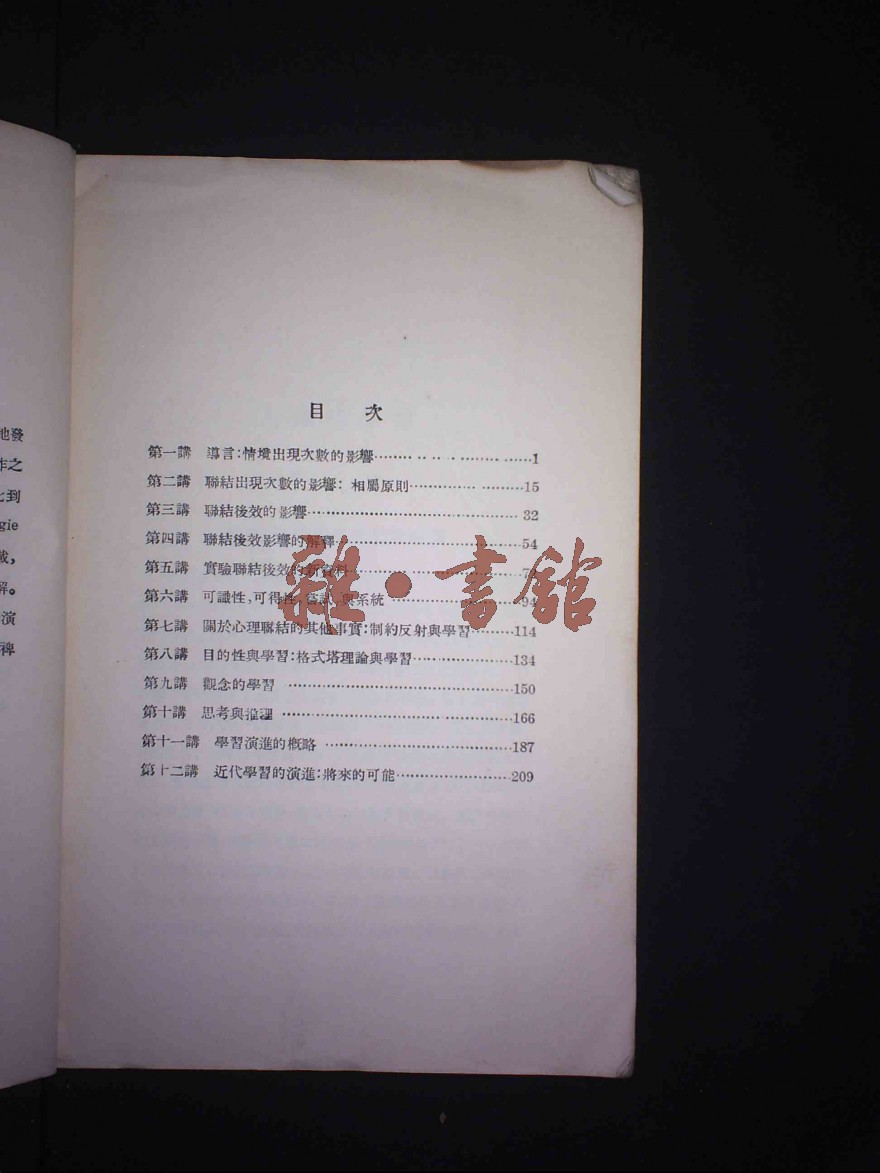 地發
作之
到
gie
載,
解。
演
裨
目 次
第一講 導言:情境出現次數的影響……1
第二講 聯結出現次數的影響: 相屬原則……15
第三講 聯結後效的影響……32
第四講 聯結後效影響的解釋……54
第五講 實驗聯結後效的新資料……7
第六講 可識性,可得性,嘗試,與系統……94
第七講 關於心理聯結的其他事實:制約反射與學習……114
第八講 目的性與學習:格式塔理論與學習……134
第九講 觀念的學習……150
第十講 思考與推理……166
第十一講 學習演進的槪略……187
第十二講 近代學習的演進:將來的可能……209
雜·書館